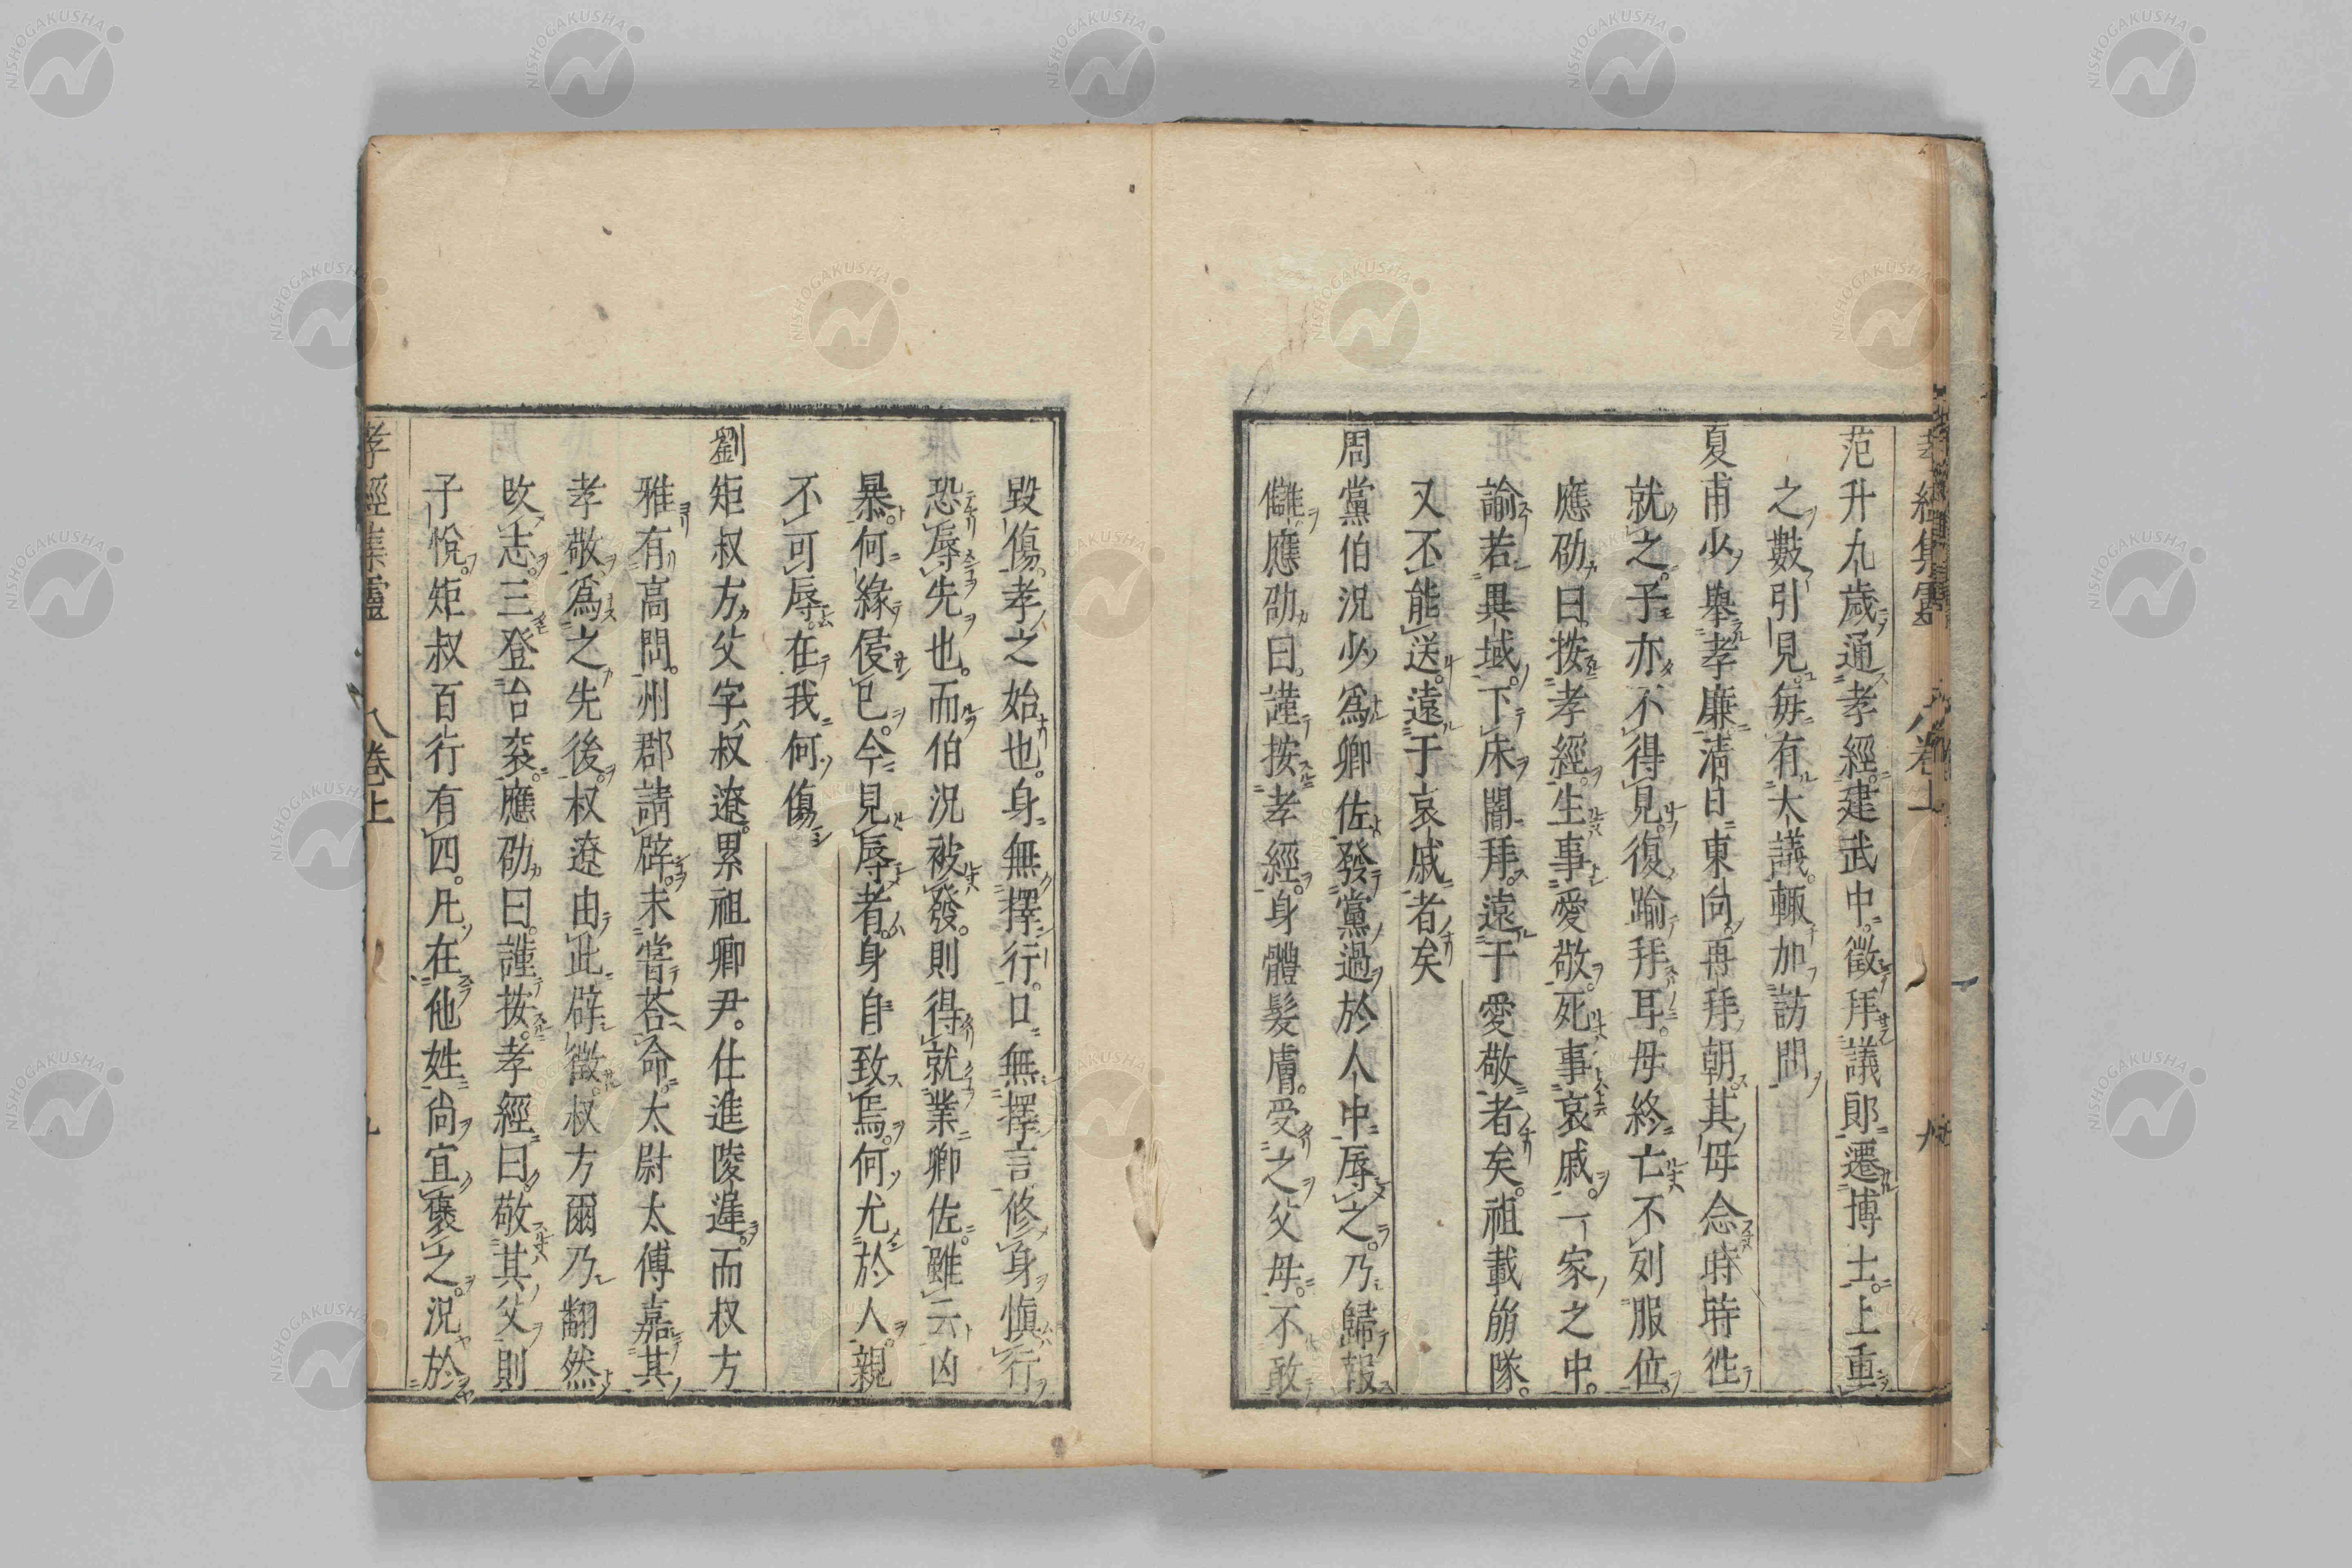 范升九歲通孝經。建武中。徵拜議郎遷博士。上重
之數引見。每有大議。輒加訪問
夏甫少舉孝廉清白東向再拜朝。其母念時時往
就之。子亦不得見。復踰拜耳。母終亡不列服位。
應劭曰。按孝經。生事愛敬。死事哀戚。一家之中。
諭若異域。下床闇拜。遠于愛敬者矣。祖載崩隊。
又不能送。遠于哀戚者矣
周黨伯況少爲鄉佐發黨過於人中辱之。乃歸報
讎。應劭曰。謹按孝經。身體髮膚。受之父母。不敢
毀傷。孝之始也。身無擇行。口無擇言修身慎行
恐辱先也。而伯況被發。則得就業鄉佐。雖云凶
暴。何緣侵己。今見辱者。身自致焉。何尤於人。親
不可辱。在我何傷
劉矩叔方父字叔遼。累祖卿尹。仕進陵遲。而叔方
雅有高問。州郡請辟。未嘗荅命。太尉太傅嘉其
孝敬爲之先後。叔遼由此辟徵。叔方爾乃翻然
改志。三登台袞。應劭曰。謹按。孝經曰。敬其父則
子悅。矩叔百行有四。凡在他姓。尚宜褒之。況於
孝經集靈 卷上
NISHOGAKUSHA